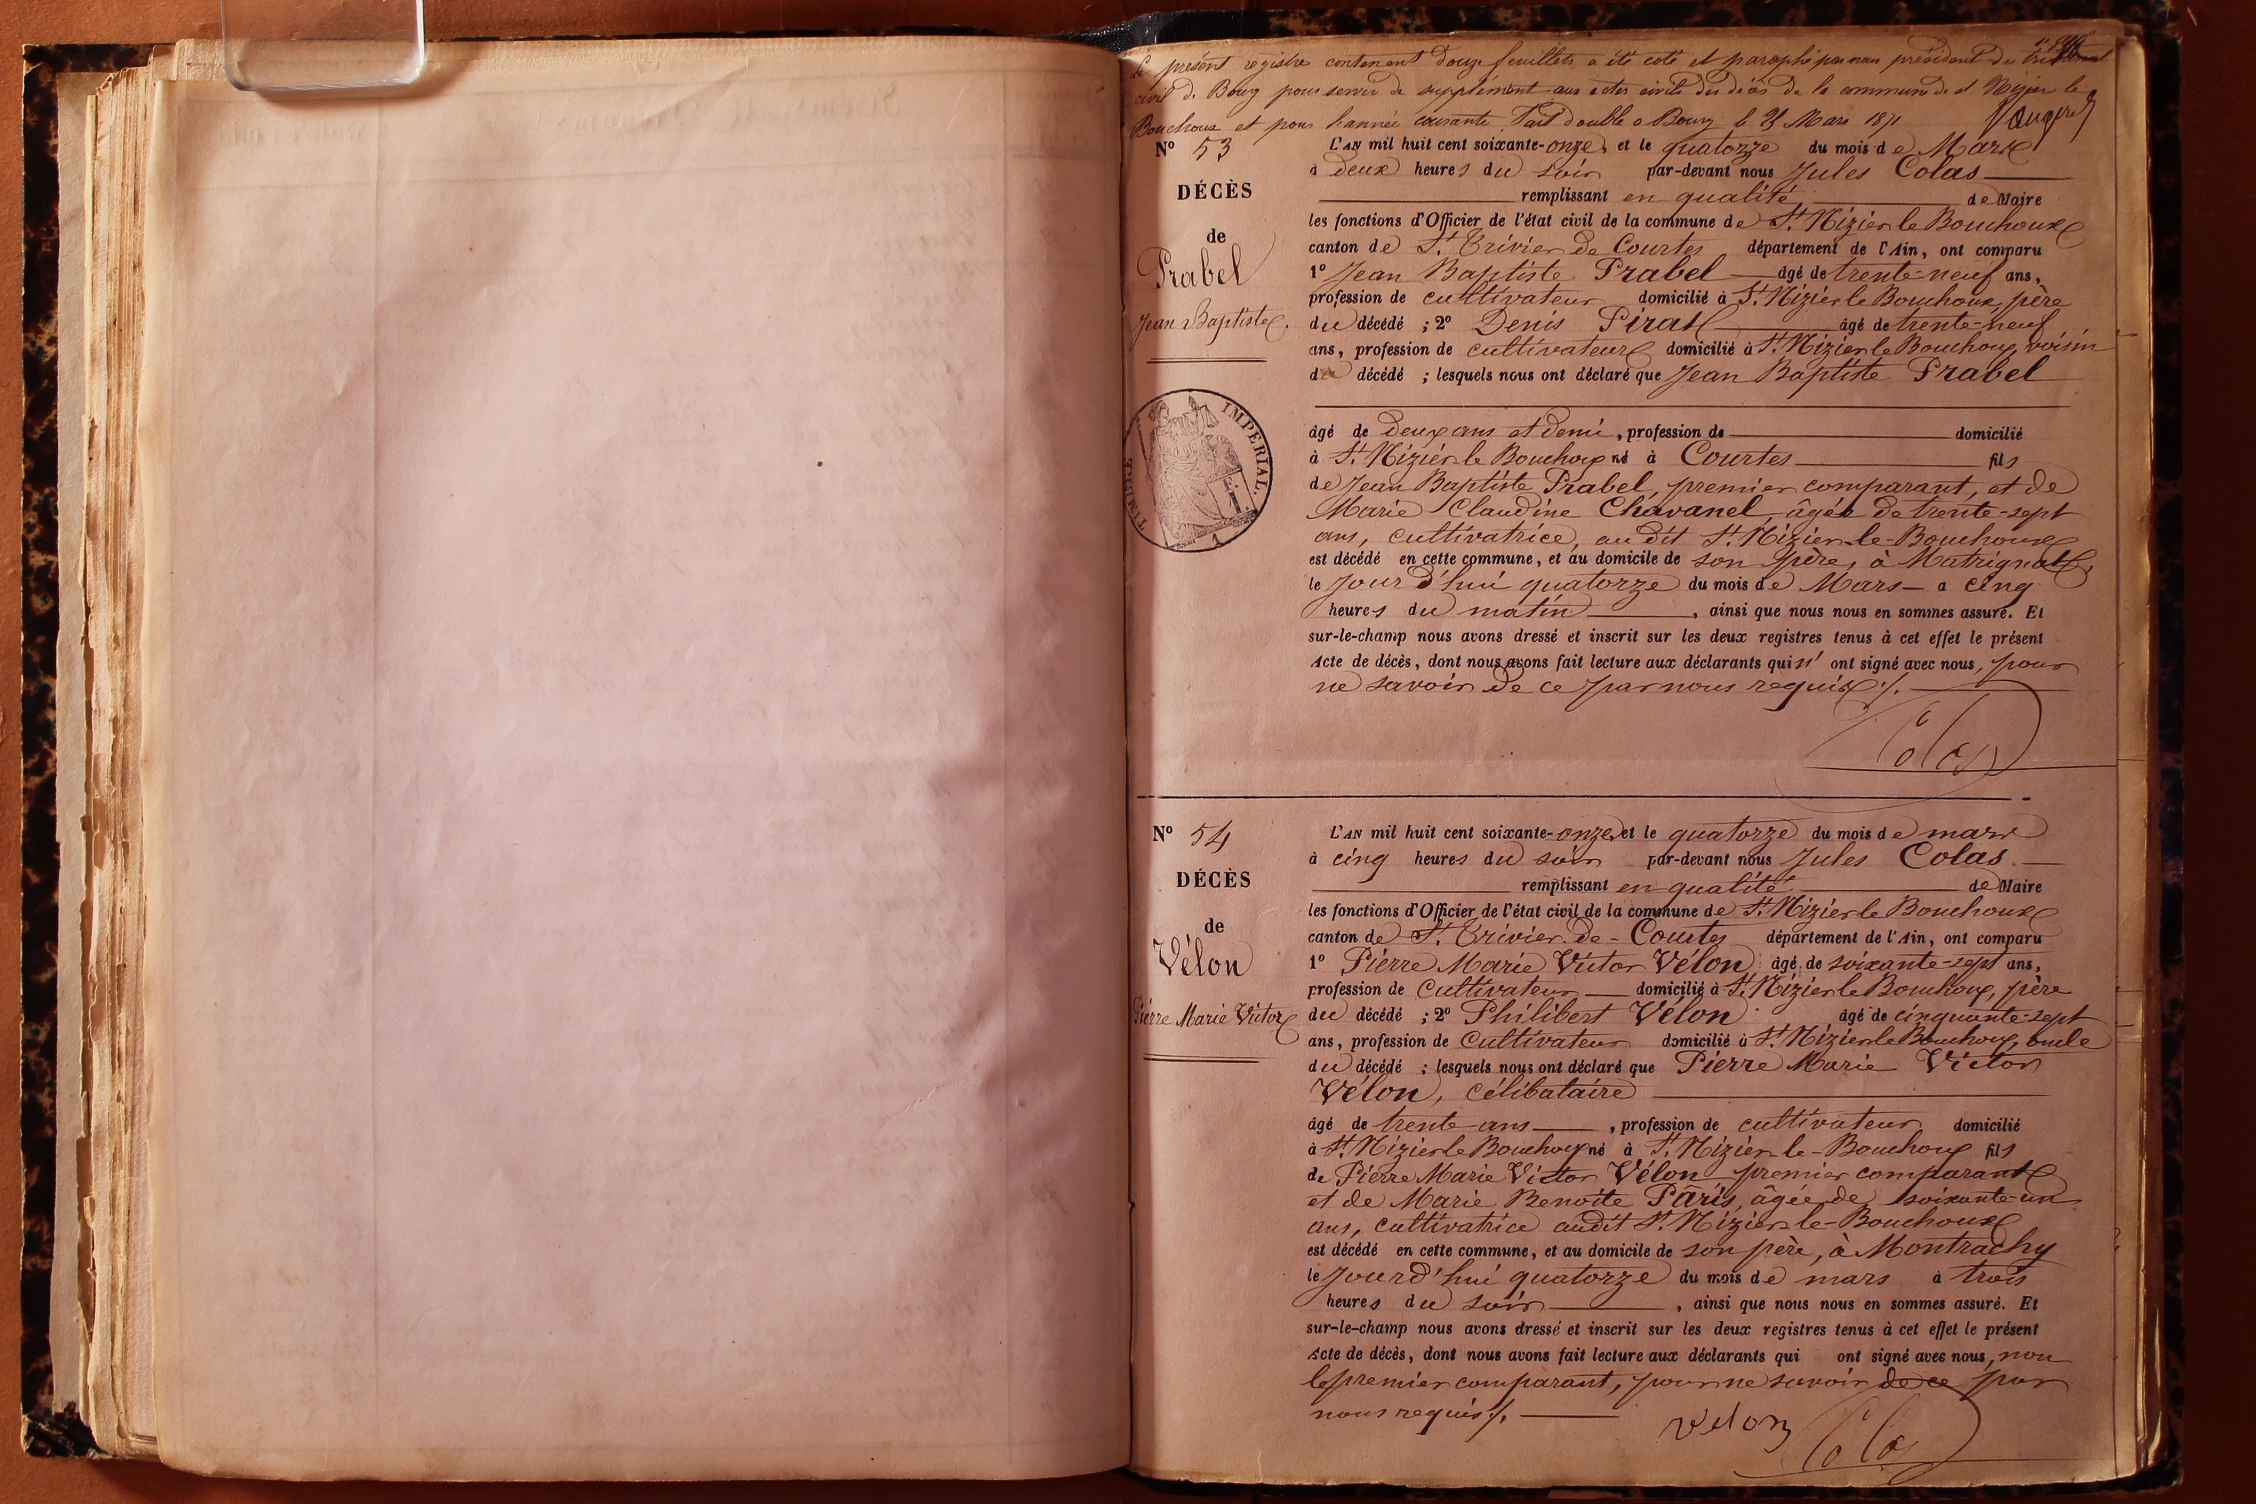 Le présent registre contenant douze feuillets a été coté et paraphé par nous président du tribunal
civil de Bourg pour servir de supplément aux actes civils des décès de la commune de St Nizier le
Bouchoux et pour l'année courante. Fait double a Bourg le 25 Mars 1871
Nº 53
DÉCÈS
de
Prabel
Jean Baptiste.
TIMBRE IMPERIAL.
1
L'AN mil huit cent soixante-onze et le quatorze du mois de Mars
à deux heures du soir par-devant nous Jules Colas
remplissant en qualité de Maire
les fonctions d'Officier de l'état civil de la commune de St Nizier le Bouchoux
canton de St Trivier de Courtes département de l'Ain, ont comparu
1º Jean Baptiste Prabel âgé de trente-neuf ans,
profession de cultivateur domicilié à St Nizier le Bouchoux, père
du décédé ; 2º Denis Pirat âgé de trente-neuf
ans, profession de cultivateur domicilié à St Nizier le Bouchoux, voisin
du décédé ; lesquels nous ont déclaré que Jean Baptiste Prabel
âgé de deux ans et demi, profession de domicilié
à St Nizier le Bouchoux né à Courtes fils
de Jean Baptiste Prabel, premier comparant, et de
Marie Claudine Chavanel, âgée de trente-sept
ans, cultivatrice, audit St Nizier-le-Bouchoux
est décédé en cette commune, et au domicile de son père, à Matrignat,
le jourd'hui quatorze du mois de Mars à cinq
heures du matin, ainsi que nous nous en sommes assuré. Et
sur-le-champ nous avons dressé et inscrit sur les deux registres tenus à cet effet le présent
Acte de décès, dont nous avons fait lecture aux déclarants qui n'ont signé avec nous, pour
ne savoir de ce par nous requis ./.
Colas
Nº 54
DÉCÈS
de
Vélon
Pierre Marie Victor
L'AN mil huit cent soixante-onze et le quatorze du mois de mars
à cinq heures du soir par-devant nous Jules Colas
remplissant en qualité de Maire
les fonctions d'Officier de l'état civil de la commune de St Nizier le Bouchoux
canton de St Trivier-de-Courtes département de l'Ain, ont comparu
1º Pierre Marie Victor Vélon âgé de soixante-sept ans,
profession de Cultivateur domicilié à St Nizier le Bouchoux, père
du décédé ; 2º Philibert Vélon âgé de cinquante-sept
ans, profession de Cultivateur domicilié à St Nizier le Bouchoux, oncle
du décédé ; lesquels nous ont déclaré que Pierre Marie Victor
Vélon, célibataire
âgé de trente ans, profession de cultivateur domicilié
à St Nizier le Bouchoux né à St Nizier-le-Bouchoux fils
de Pierre Marie Victor Vélon premier comparant
et de Marie Benoite Paris, âgée de soixante-un
ans, cultivatrice audit St Nizier-le-Bouchoux
est décédé en cette commune, et au domicile de son père, à Montrachy
le jourd'hui quatorze du mois de mars à trois
heures du soir, ainsi que nous nous en sommes assuré. Et
sur-le-champ nous avons dressé et inscrit sur les deux registres tenus à cet effet le présent
Acte de décès, dont nous avons fait lecture aux déclarants qui ont signé avec nous, non
le premier comparant, pour ne savoir de ce par
nous requis ./.
Velon Colas